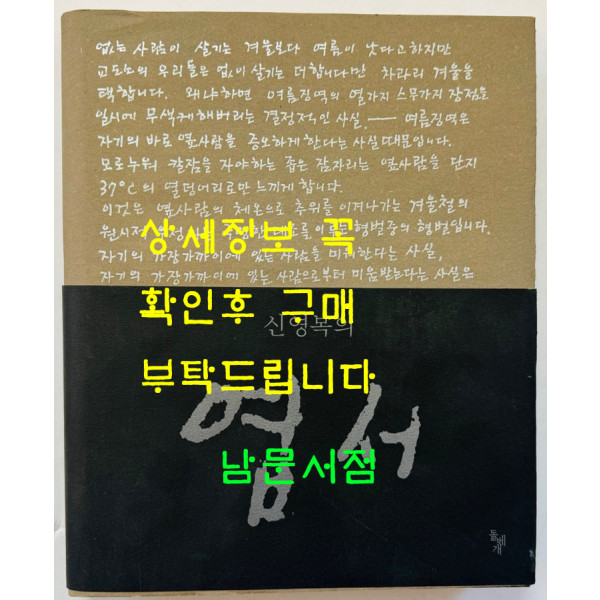 없는 사람이 살기는 겨울보다 여름이 낫다고하지만
교도소의 우리들은 없이 살기는 더합니다만 차라리 겨울을
택합니다. 왜냐하면 여름징역의 열가지 스무가지 장점을
일시에 무색케해버리는 결정적인 사실. — 여름징역은
자기의 바로 옆사람을 증오하게한다는 사실때문입니다.
모로누워 칼잠을 자야하는 좁은 잠자리는 옆사람을 단지
37°C의 열덩어리로만 느끼게 합니다.
이것은 옆사람의 체온으로 추위를 이겨나가는 겨울철의
원시적 형벌중의 형벌입니다.
자기의 가장가까이에 있는 사람을 미워한다는 사실,
자기의 가장가까이에 있는 사람으로부터 미움받는다는 사실은
상세정보 꼭
확인후 구매
부탁드립니다
남문서점
신영복의
엽서
돌베개